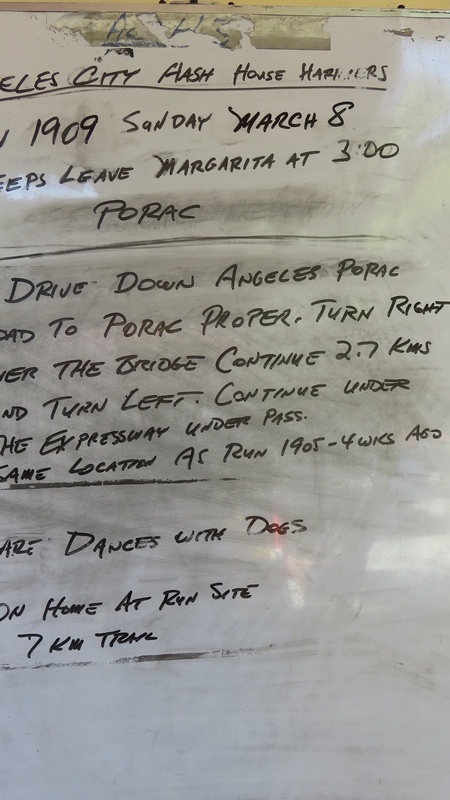 ELES CITY FLASH HOUSE HARRIERS
N 1909 SUNDAY MARCH 8
EEPS LEAVE MARGARITA AT 3:00
PORAC
DRIVE DOWN ANGELES PORAC
OAD TO PORAC PROPER. TURN RIGHT
VER THE BRIDGE CONTINUE 2.7 KMS
ND TURN LEFT. CONTINUE UNDER
THE EXPRESSWAY UNDER PASS.
SAME LOCATION AS RUN 1905-4WKS AGO
ARE DANCES WITH DOGS
ON HOME AT RUN SITE
7 KM TRAIL